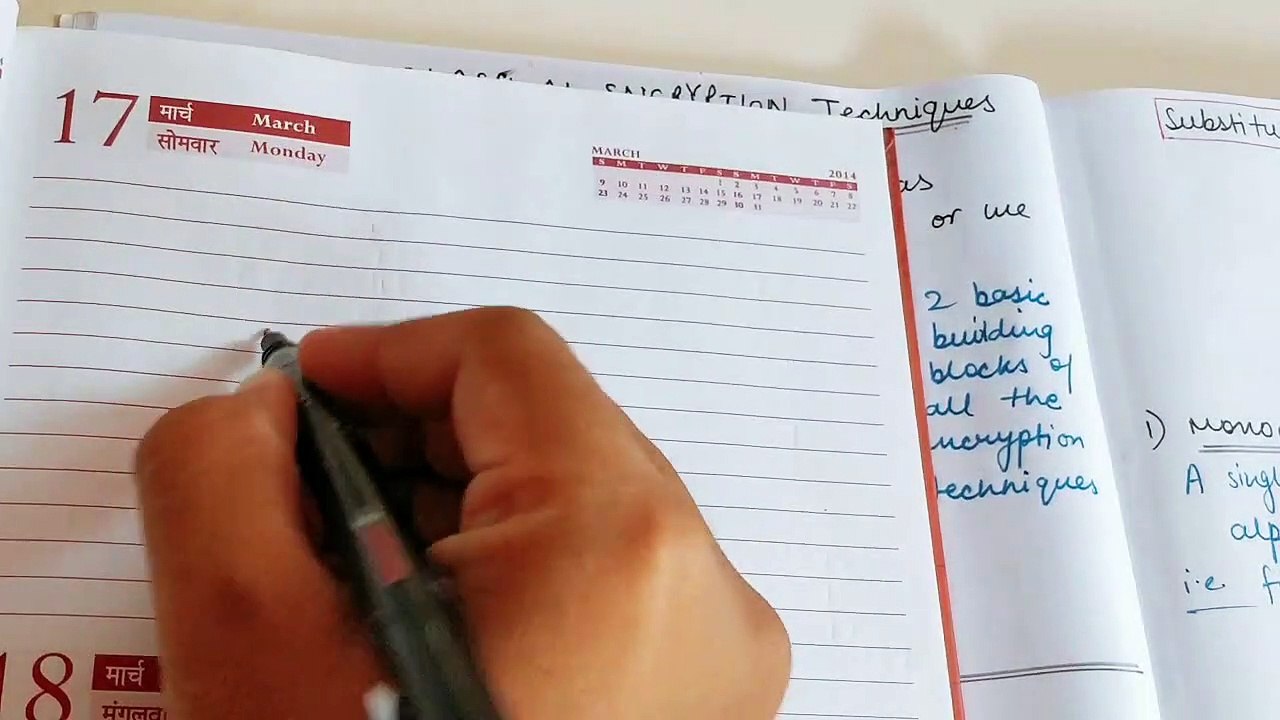 ENCRYPTION Techniques
17 मार्च March
सोमवार Monday
MARCH 2014
S M T W T F S S M T W T F S
1 2 3 4 5 6 7 8
9 10 11 12 13 14 15 16 17 18 19 20 21 22
23 24 25 26 27 28 29 30 31
as
or we
2 basic
building
blocks of
all the
ncryption
techniques
Substitu
1) Mono
A singl
alp
i.e f
18 मार्च
मंगलवा